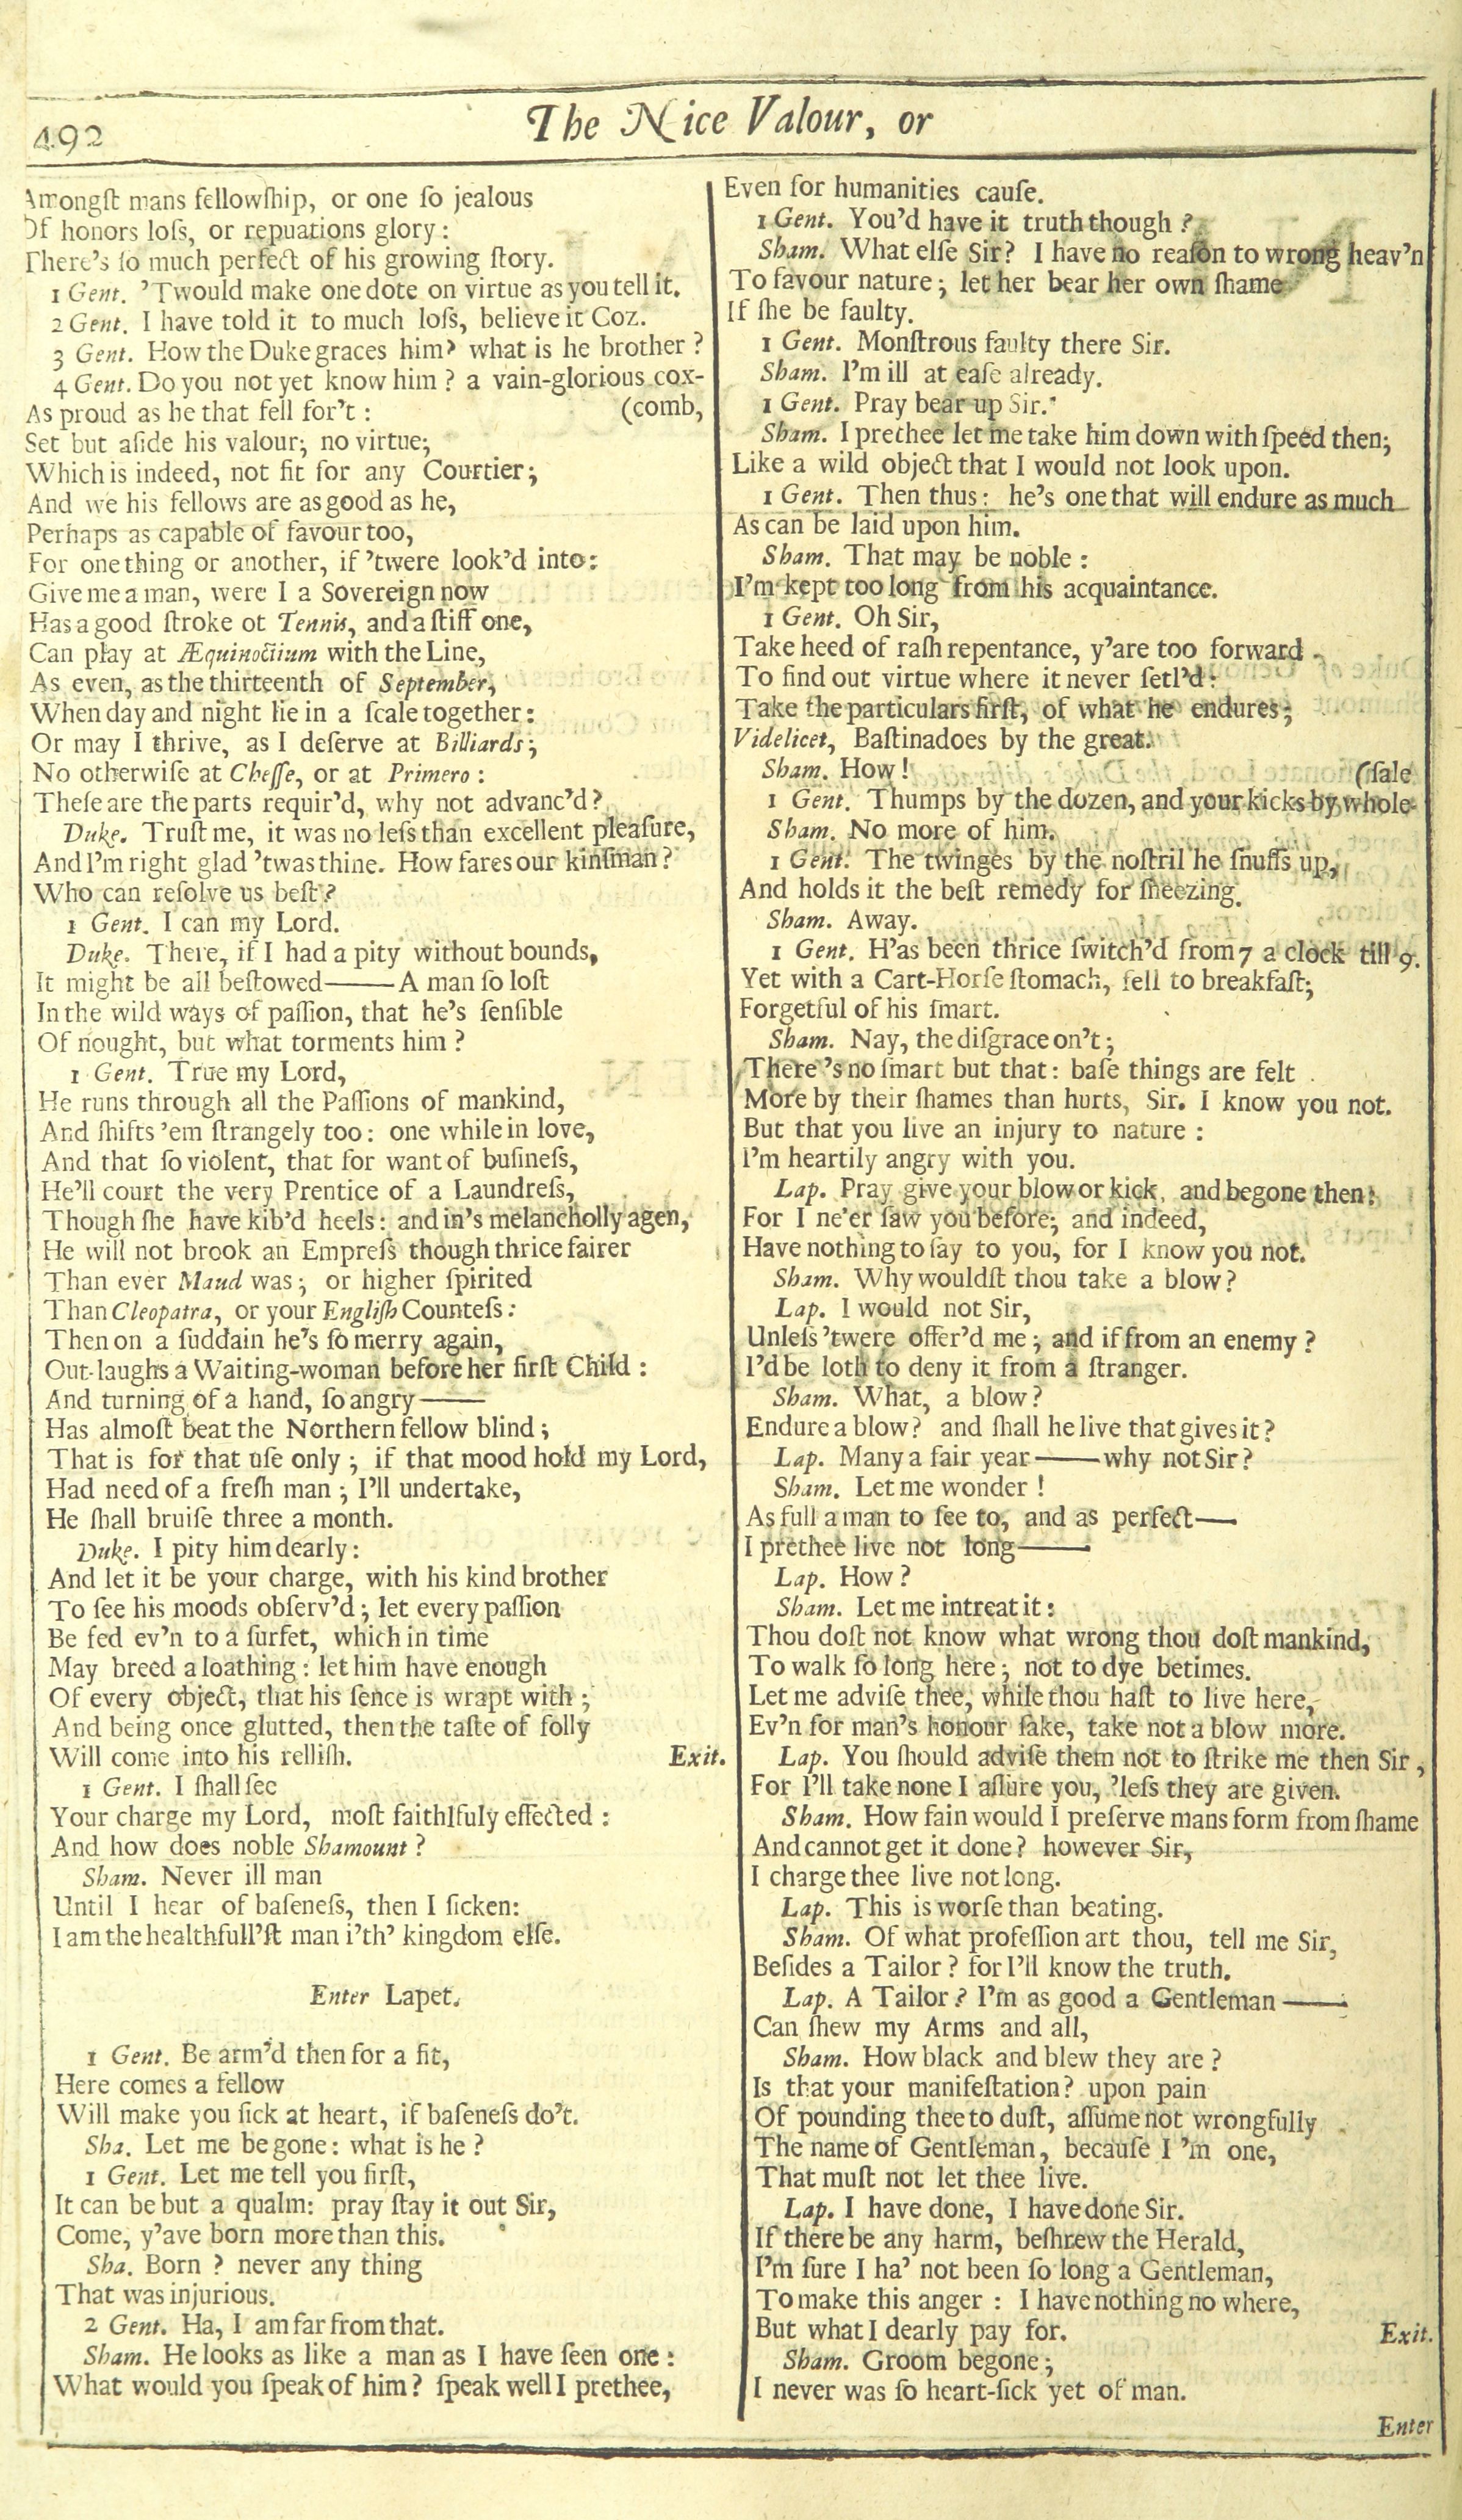 492
The Nice Valour, or
Amongſt mans fellowſhip, or one ſo jealous
Of honors loſs, or repuations glory:
There's ſo much perfect of his growing ſtory.
1 Gent. 'Twould make one dote on virtue as you tell it.
2 Gent. I have told it to much loſs, believe it Coz.
3 Gent. How the Duke graces him? what is he brother?
4 Gent. Do you not yet know him? a vain-glorious cox-
As proud as he that fell for't: (comb,
Set but aſide his valour; no virtue;
Which is indeed, not fit for any Courtier;
And we his fellows are as good as he,
Perhaps as capable of favour too,
For one thing or another, if 'twere look'd into:
Give me a man, were I a Sovereign now
Has a good ſtroke ot Tennis, and a ſtiff one,
Can play at Æquinoctium with the Line,
As even, as the thirteenth of September,
When day and night lie in a ſcale together:
Or may I thrive, as I deſerve at Billiards;
No otherwiſe at Cheſſe, or at Primero:
Theſe are the parts requir'd, why not advanc'd?
Duke. Truſt me, it was no leſs than excellent pleaſure,
And I'm right glad 'twas thine. How fares our kinſman?
Who can reſolve us beſt?
1 Gent. I can my Lord.
Duke. There, if I had a pity without bounds,
It might be all beſtowed——A man ſo loſt
In the wild ways of paſſion, that he's ſenſible
Of nought, but what torments him?
1 Gent. True my Lord,
He runs through all the Paſſions of mankind,
And ſhifts 'em ſtrangely too: one while in love,
And that ſo violent, that for want of buſineſs,
He'll court the very Prentice of a Laundreſs,
Though ſhe have kib'd heels: and in's melancholly agen,
He will not brook an Empreſs though thrice fairer
Than ever Maud was; or higher ſpirited
Than Cleopatra, or your Engliſh Counteſs:
Then on a ſuddain he's ſo merry again,
Out-laughs a Waiting-woman before her firſt Child:
And turning of a hand, ſo angry——
Has almoſt beat the Northern fellow blind;
That is for that uſe only; if that mood hold my Lord,
Had need of a freſh man; I'll undertake,
He ſhall bruiſe three a month.
Duke. I pity him dearly:
And let it be your charge, with his kind brother
To ſee his moods obſerv'd; let every paſſion
Be fed ev'n to a ſurfet, which in time
May breed a loathing: let him have enough
Of every object, that his ſence is wrapt with;
And being once glutted, then the taſte of folly
Will come into his relliſh. Exit.
1 Gent. I ſhall ſee
Your charge my Lord, moſt faithlfuly effected:
And how does noble Shamount?
Sham. Never ill man
Until I hear of baſeneſs, then I ſicken:
I am the healthfull'ſt man i'th' kingdom elſe.
Enter Lapet.
1 Gent. Be arm'd then for a fit,
Here comes a fellow
Will make you ſick at heart, if baſeneſs do't.
Sha. Let me be gone: what is he?
1 Gent. Let me tell you firſt,
It can be but a qualm: pray ſtay it out Sir,
Come, y'ave born more than this.
Sha. Born? never any thing
That was injurious.
2 Gent. Ha, I am far from that.
Sham. He looks as like a man as I have ſeen one:
What would you ſpeak of him? ſpeak well I prethee,
Even for humanities cauſe.
1 Gent. You'd have it truth though?
Sham. What elſe Sir? I have no reaſon to wrong heav'n
To favour nature; let her bear her own ſhame
If ſhe be faulty.
1 Gent. Monſtrous faulty there Sir.
Sham. I'm ill at eaſe already.
1 Gent. Pray bear up Sir.
Sham. I prethee let me take him down with ſpeed then;
Like a wild object that I would not look upon.
1 Gent. Then thus: he's one that will endure as much
As can be laid upon him.
Sham. That may be noble:
I'm kept too long from his acquaintance.
1 Gent. Oh Sir,
Take heed of raſh repentance, y'are too forward
To find out virtue where it never ſetl'd:
Take the particulars firſt, of what he endures;
Videlicet, Baſtinadoes by the great.
Sham. How! (ſale
1 Gent. Thumps by the dozen, and your kicks by whole-
Sham. No more of him.
1 Gent. The twinges by the noſtril he ſnuffs up,
And holds it the beſt remedy for ſneezing.
Sham. Away.
1 Gent. H'as been thrice ſwitch'd from 7 a clock till 9.
Yet with a Cart-Horſe ſtomach, fell to breakfaſt;
Forgetful of his ſmart.
Sham. Nay, the diſgrace on't;
There's no ſmart but that: baſe things are felt
More by their ſhames than hurts, Sir. I know you not.
But that you live an injury to nature:
I'm heartily angry with you.
Lap. Pray give your blow or kick, and begone then:
For I ne'er ſaw you before; and indeed,
Have nothing to ſay to you, for I know you not.
Sham. Why wouldſt thou take a blow?
Lap. I would not Sir,
Unleſs 'twere offer'd me; and if from an enemy?
I'd be loth to deny it from a ſtranger.
Sham. What, a blow?
Endure a blow? and ſhall he live that gives it?
Lap. Many a fair year——why not Sir?
Sham. Let me wonder!
As full a man to ſee to, and as perfect—
I prethee live not long——
Lap. How?
Sham. Let me intreat it:
Thou doſt not know what wrong thou doſt mankind,
To walk ſo long here; not to dye betimes.
Let me adviſe thee, while thou haſt to live here,
Ev'n for man's honour ſake, take not a blow more.
Lap. You ſhould adviſe them not to ſtrike me then Sir,
For I'll take none I aſſure you, 'leſs they are given.
Sham. How fain would I preſerve mans form from ſhame
And cannot get it done? however Sir,
I charge thee live not long.
Lap. This is worſe than beating.
Sham. Of what profeſſion art thou, tell me Sir,
Beſides a Tailor? for I'll know the truth.
Lap. A Tailor? I'm as good a Gentleman——
Can ſhew my Arms and all,
Sham. How black and blew they are?
Is that your manifeſtation? upon pain
Of pounding thee to duſt, aſſume not wrongfully
The name of Gentleman, becauſe I 'm one,
That muſt not let thee live.
Lap. I have done, I have done Sir.
If there be any harm, beſhrew the Herald,
I'm ſure I ha' not been ſo long a Gentleman,
To make this anger: I have nothing no where,
But what I dearly pay for. Exit.
Sham. Groom begone;
I never was ſo heart-ſick yet of man.
Enter